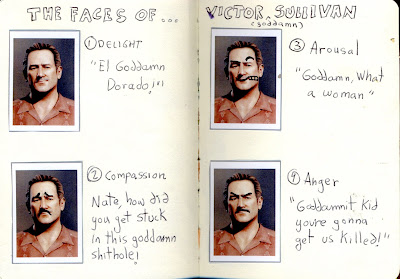 THE FACES OF... VICTOR SULLIVAN
(goddamn)
① DELIGHT
"El Goddamn
Dorado!"
② COMPASSION
Nate, how did
you get stuck
in this goddamn
shithole!
③ Arousal
"Goddamn, What
a woman"
④ Anger
"Goddammit kid
you're gonna
get us killed!"